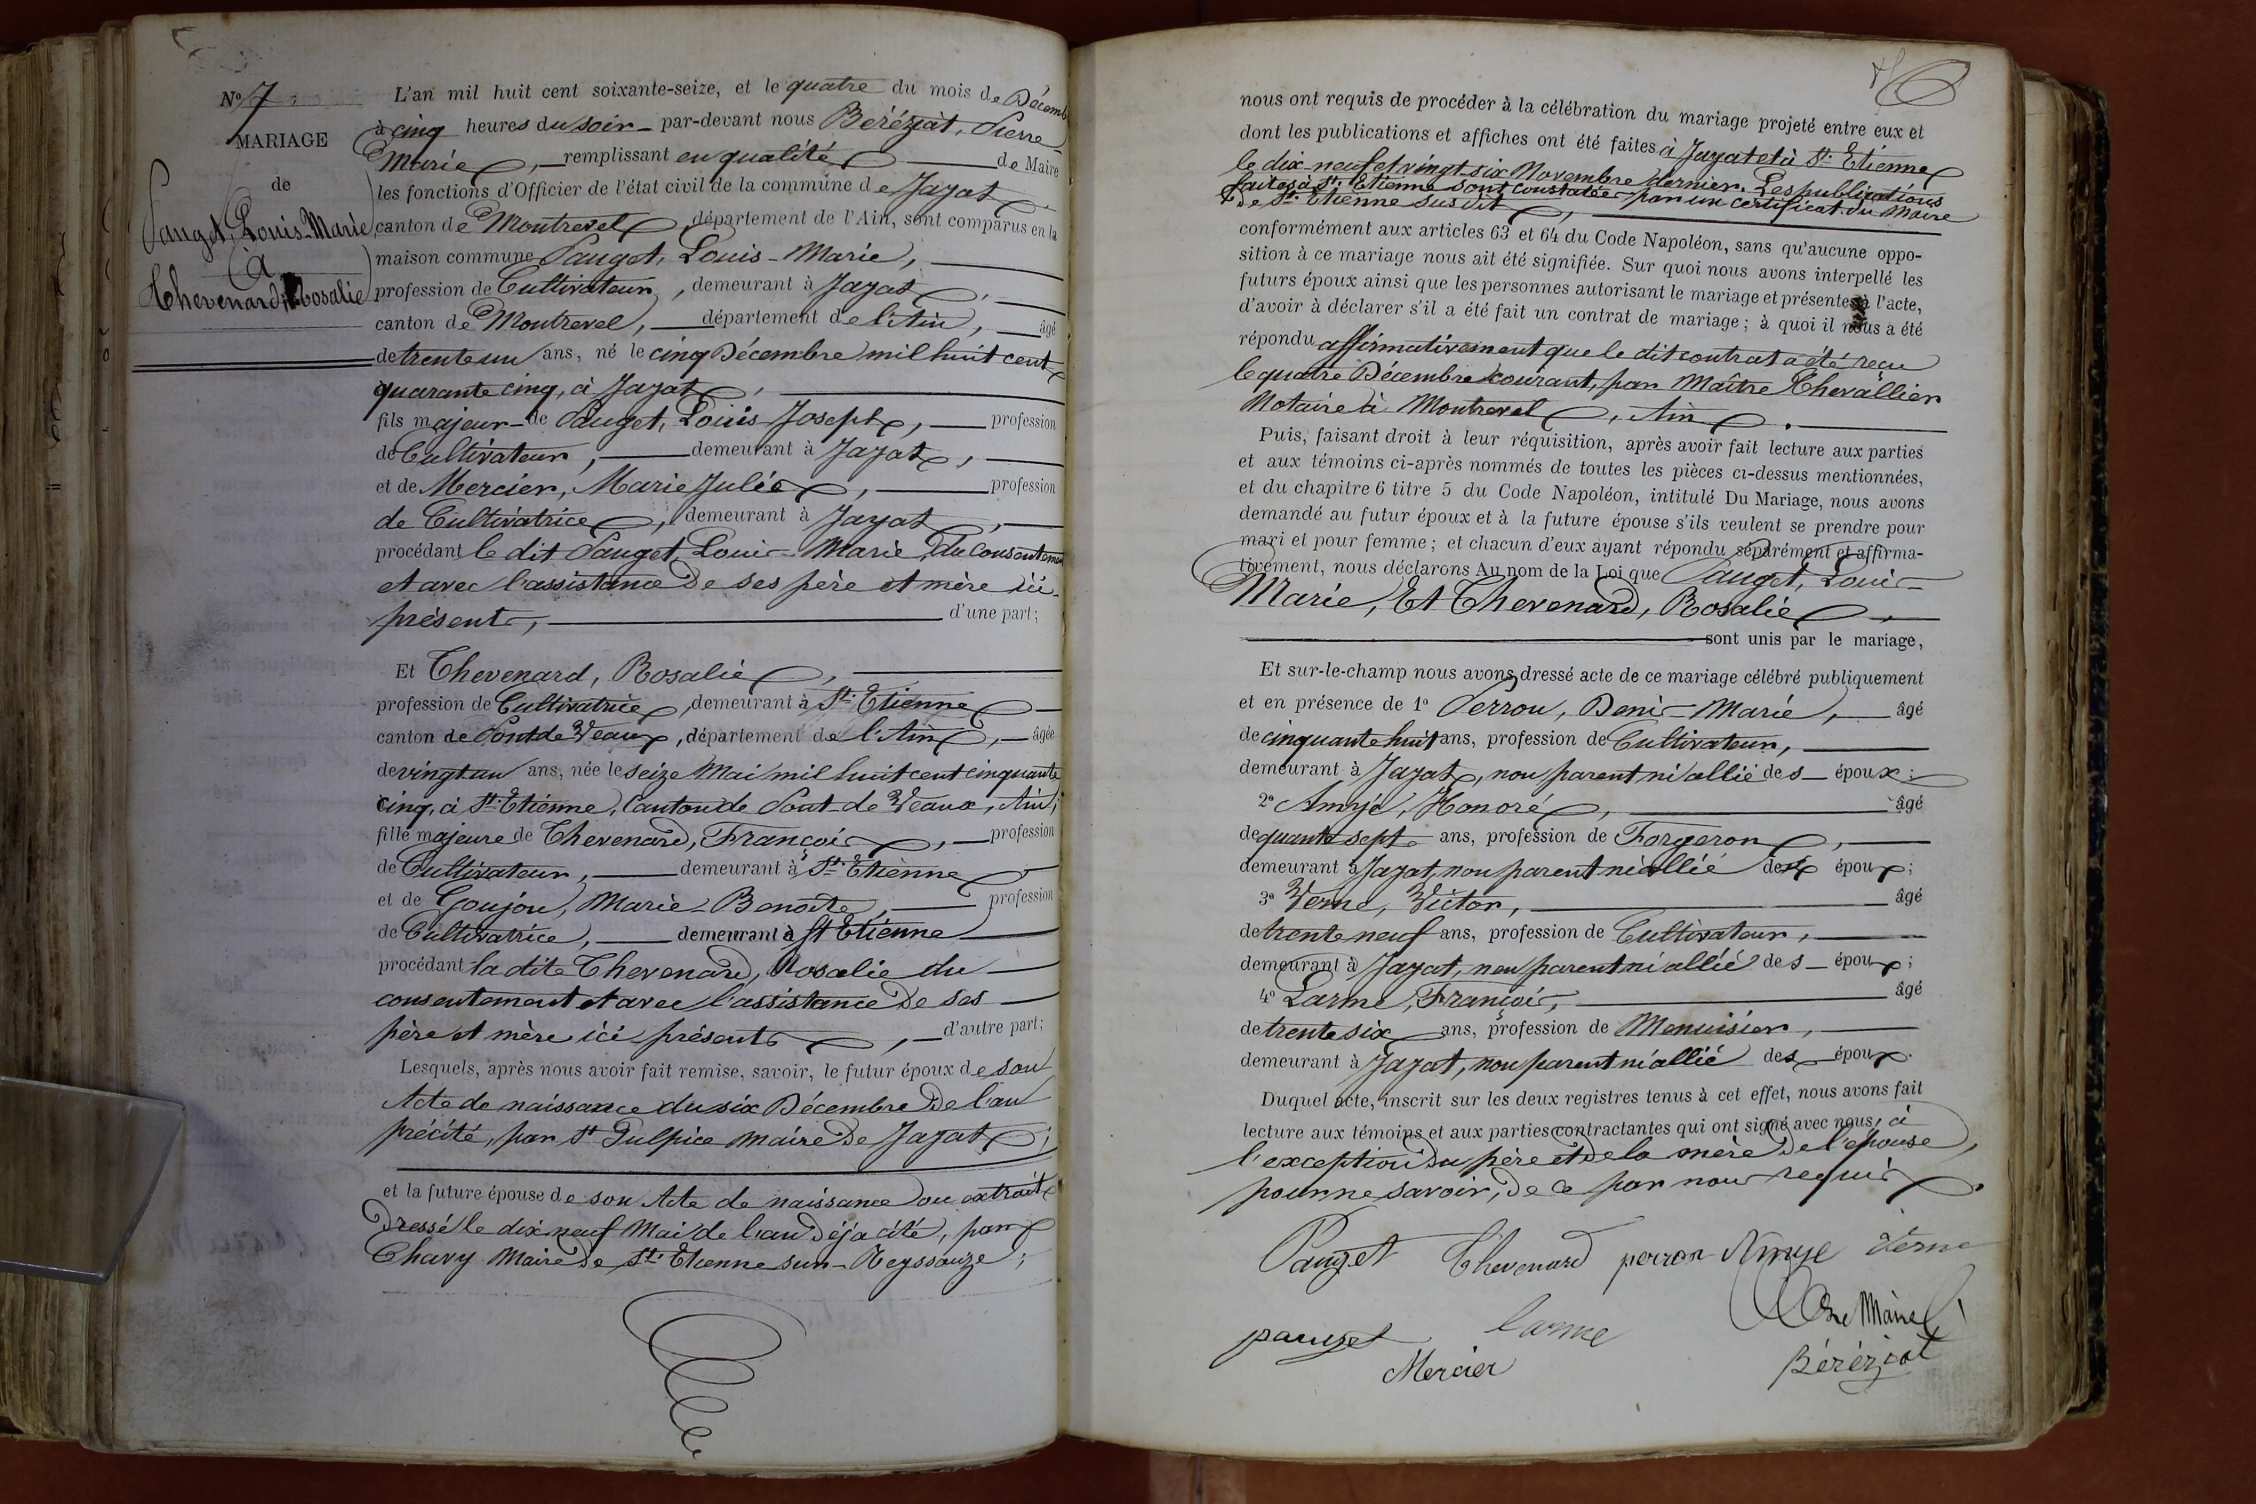 N° 7
MARIAGE
de
Pauget, Louis-Marie
à
Thevenard, Rosalie
L'an mil huit cent soixante-seize, et le quatre du mois de Décemb
à cinq heures du soir - par-devant nous Béréziat, Pierre
Marie, remplissant en qualité de Maire
les fonctions d'Officier de l'état civil de la commune de Jayat
canton de Montrevel, département de l'Ain, sont comparus en la
maison commune Pauget, Louis-Marie,
profession de Cultivateur, demeurant à Jayat,
canton de Montrevel, département de l'Ain, âgé
de trente un ans, né le cinq Décembre mil huit cent
quarante cinq, à Jayat,
fils majeur de Pauget, Louis Joseph, profession
de Cultivateur, demeurant à Jayat,
et de Mercier, Marie Julie, profession
de Cultivatrice, demeurant à Jayat,
procédant le dit Pauget Louis-Marie du consentemen
et avec l'assistance de ses père et mère ici
présents, d'une part;
Et Thevenard, Rosalie,
profession de Cultivatrice, demeurant à St. Etienne
canton de Pont de Veaux, département de l'Ain, âgée
de vingt un ans, née le seize Mai mil huit cent cinquante
cinq, à St. Etienne, Canton de Pont-de-Veaux, Ain;
fille majeure de Thevenard, François, profession
de Cultivateur, demeurant à St. Etienne
et de Goujon, Marie-Benoite, profession
de Cultivatrice, demeurant à St Etienne
procédant la dite Thevenard, Rosalie du
consentement et avec l'assistance de ses
père et mère ici présents, d'autre part;
Lesquels, après nous avoir fait remise, savoir, le futur époux de son
Acte de naissance du six Décembre de l'an
précité, par St Sulpice Maire de Jayat;
et la future épouse de son Acte de naissance ou extrait
dressé le dix neuf Mai de l'an déjà cité, par
Chavy Maire de St. Etienne sur-Reyssouze;
nous ont requis de procéder à la célébration du mariage projeté entre eux et
dont les publications et affiches ont été faites à Jayat et à St. Etienne
le dix-neuf et vingt-six Novembre dernier. Les publications
faites à St. Etienne sont constatées par un certificat du Maire
de St. Etienne susdit,
conformément aux articles 63 et 64 du Code Napoléon, sans qu'aucune oppo-
sition à ce mariage nous ait été signifiée. Sur quoi nous avons interpellé les
futurs époux ainsi que les personnes autorisant le mariage et présentes à l'acte,
d'avoir à déclarer s'il a été fait un contrat de mariage; à quoi il nous a été
répondu affirmativement que le dit contrat a été reçu
le quatre Décembre courant, par Maître Chevallier
Notaire à Montrevel, Ain.
Puis, faisant droit à leur réquisition, après avoir fait lecture aux parties
et aux témoins ci-après nommés de toutes les pièces ci-dessus mentionnées,
et du chapitre 6 titre 5 du Code Napoléon, intitulé Du Mariage, nous avons
demandé au futur époux et à la future épouse s'ils veulent se prendre pour
mari et pour femme; et chacun d'eux ayant répondu séparément et affirma-
tivement, nous déclarons Au nom de la Loi que Pauget, Louis-
Marie, Et Thevenard, Rosalie,
sont unis par le mariage,
Et sur-le-champ nous avons dressé acte de ce mariage célébré publiquement
et en présence de 1° Perron, Denis-Marie, âgé
de cinquante huit ans, profession de Cultivateur,
demeurant à Jayat, non parent ni allié des époux;
2° Amyé, Honoré, âgé
de quante sept ans, profession de Forgeron,
demeurant à Jayat, non parent ni allié des époux;
3° Verne, Victor, âgé
de trente neuf ans, profession de Cultivateur,
demeurant à Jayat, non parent ni allié des époux;
4° Larme, François, âgé
de trente six ans, profession de Menuisier,
demeurant à Jayat, non parent ni allié des époux.
Duquel acte, inscrit sur les deux registres tenus à cet effet, nous avons fait
lecture aux témoins et aux parties contractantes qui ont signé avec nous, à
l'exception du père et de la mère de l'épouse,
pour ne savoir, de ce par nous requis.
Pauget Thevenard perron Amyé Verne
Le Maire
pauget larme
Mercier Béréziat